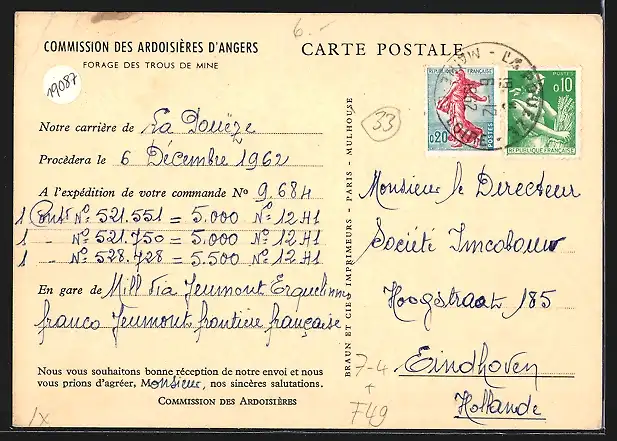 COMMISSION DES ARDOISIÈRES D'ANGERS
FORAGE DES TROUS DE MINE
19087
6.-
CARTE POSTALE
RÉPUBLIQUE FRANÇAISE
0,20
POSTES
POSTES
0,10
REPUBLIQUE FRANÇAISE
33
Notre carrière de La Pouëze
Procèdera le 6 Décembre 1962
A l'expédition de votre commande No 9.684
1 Cont No 521.551 = 5.000 No 12 H1
1 - No 521.750 = 5.000 No 12 H1
1 - No 528.428 = 5.500 No 12 H1
En gare de Mill via Jeumont Erquelinnes
franco Jeumont frontière française
Nous vous souhaitons bonne réception de notre envoi et nous
vous prions d'agréer, Monsieur, nos sincères salutations.
COMMISSION DES ARDOISIÈRES
BRAUN ET CIE IMPRIMEURS - PARIS - MULHOUSE
Monsieur le Directeur
Société Imcobouw
Hoogstraat 185
Eindhoven
Hollande
7-4
+
F49
1x